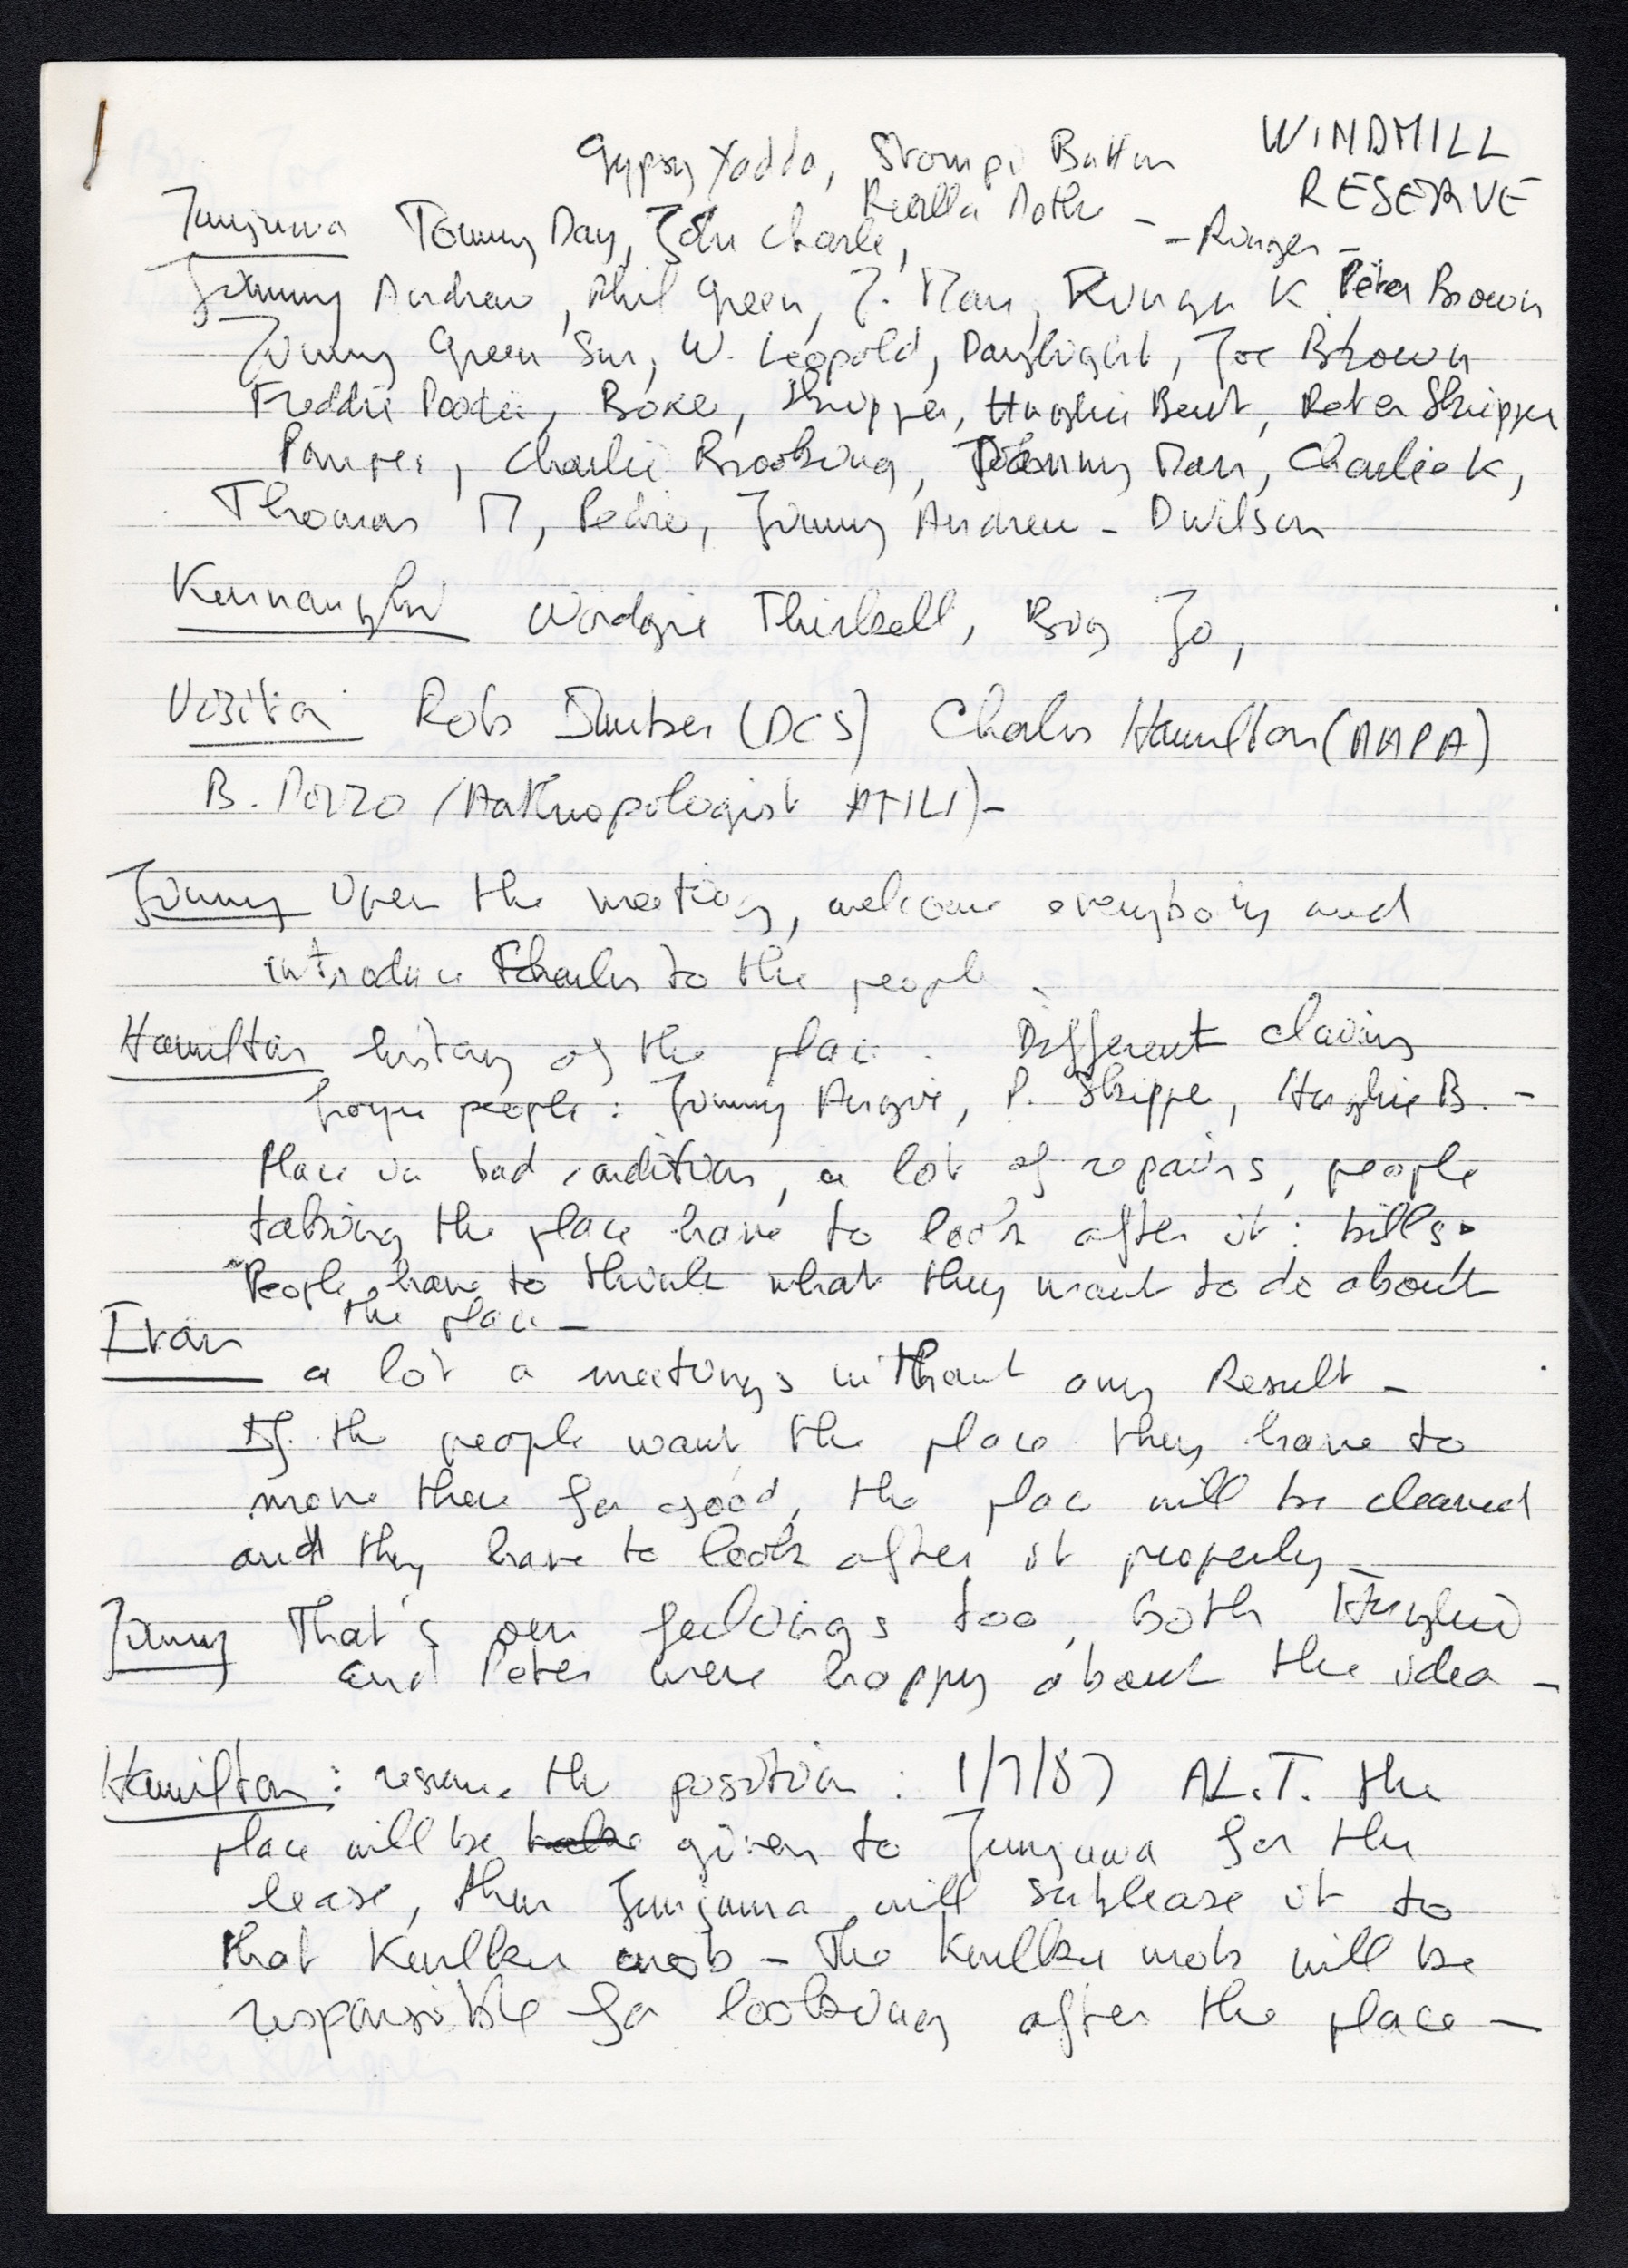 WINDMILL
RESERVE
Gypsy Yadda, Stompi Button
Junjuwa Tommy Day, John Charle,
Jimmy Andrew, Phil Green, J. Man, K Peter Brown
Jimmy Green Sun, W. Leopold, Daylight, Joe Brown
Freddie, Boxe, Skipper, Hughie Bent, Peter Skipper
Charlie Brooking, Tommy Man, Charlie K,
Thomas M, Pedro, Jimmy Andrew - D Wilson
Thirkall, Big Jo,
Visitor Rob (DCS) Charles Hamilton (AAPA)
B. Pozzo (Anthropologist AFILI) -
Jimmy Open the meeting, welcome everybody and
introduce Charles to the people -
Hamilton history of the place. Different claims
from people: Jimmy, P. Skipper, Hughie B. -
Place in bad condition, a lot of repairs, people
taking the place have to look after it: bills.
People have to think what they want to do about
the place -
Ivan
a lot a meetings without any Result -
If the people want the place they have to
move there for good, the place will be cleaned
and they have to look after it properly -
Jimmy That's our feelings too, both Hughie
and Peter were happy about the idea -
Hamilton: resume the position: 1/7/87 A.L.T. the
place will be given to Junjuwa for the
lease, then Junjuwa will sublease it to
that Kurlku mob - The Kurlku mob will be
responsible for looking after the place -